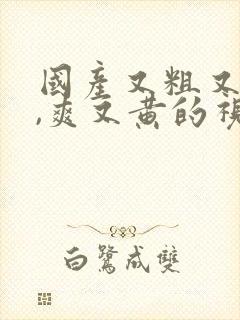 國產又粗又
,爽又黃的視
白鷺成雙